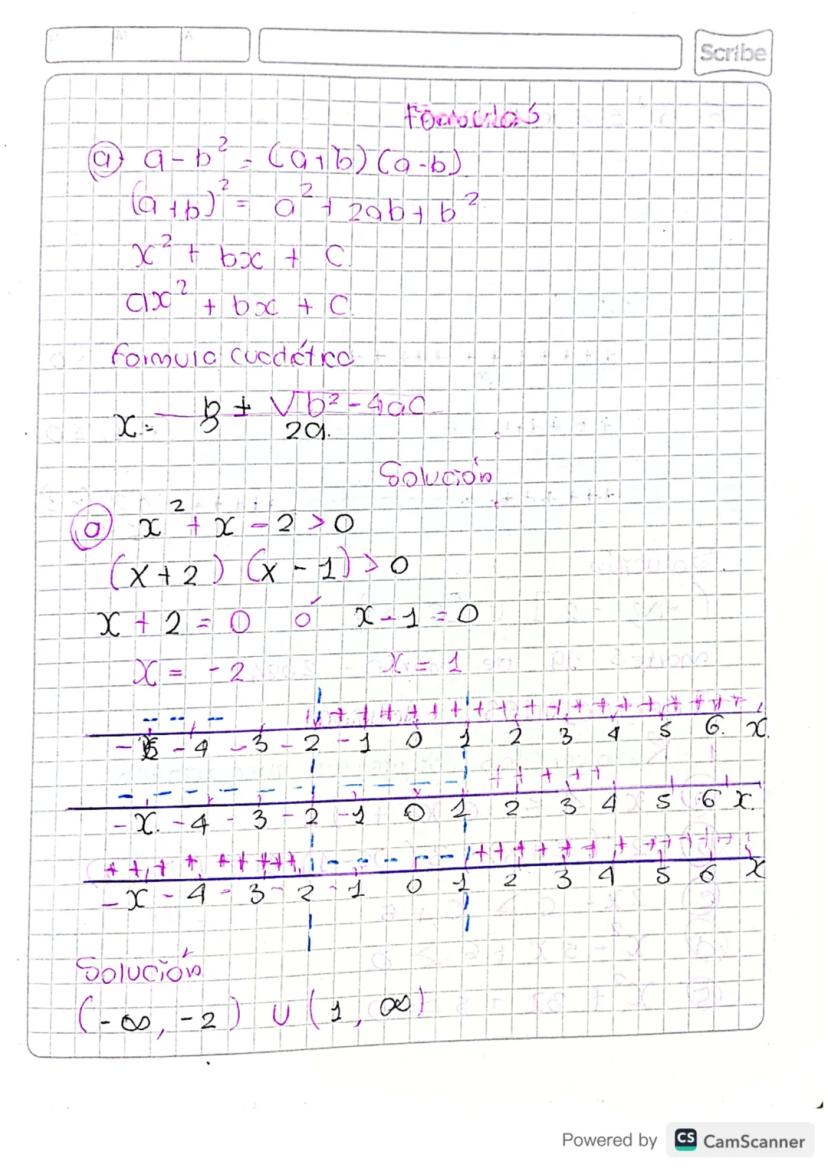 Scribe
Formulas
a) a - b² = (a+b) (a-b)
(a+b)² = a² + 2ab + b²
x² + bx + C
ax² + bx + C
formula cuadática
x = - b ± √b² - 4aC
2a.
Solución
a) x² + x - 2 > 0
(x + 2) (x - 1) > 0
x + 2 = 0 ó x - 1 = 0
x = -2 x = 1
-- -- -- + + + + + + + + + + + + + + + + + + + +
-5 -4 -3 -2 -1 0 1 2 3 4 5 6. x.
- - - - - - - - - + + + + +
-x. -4 -3 -2 -1 0 1 2 3 4 5 6 x.
+ + + + + + + + + - - - - - + + + + + + + + + + + + +
-x -4 -3 -2 -1 0 1 2 3 4 5 6 x
Solución
(-∞, -2) ∪ (1, ∞)
Powered by CS CamScanner